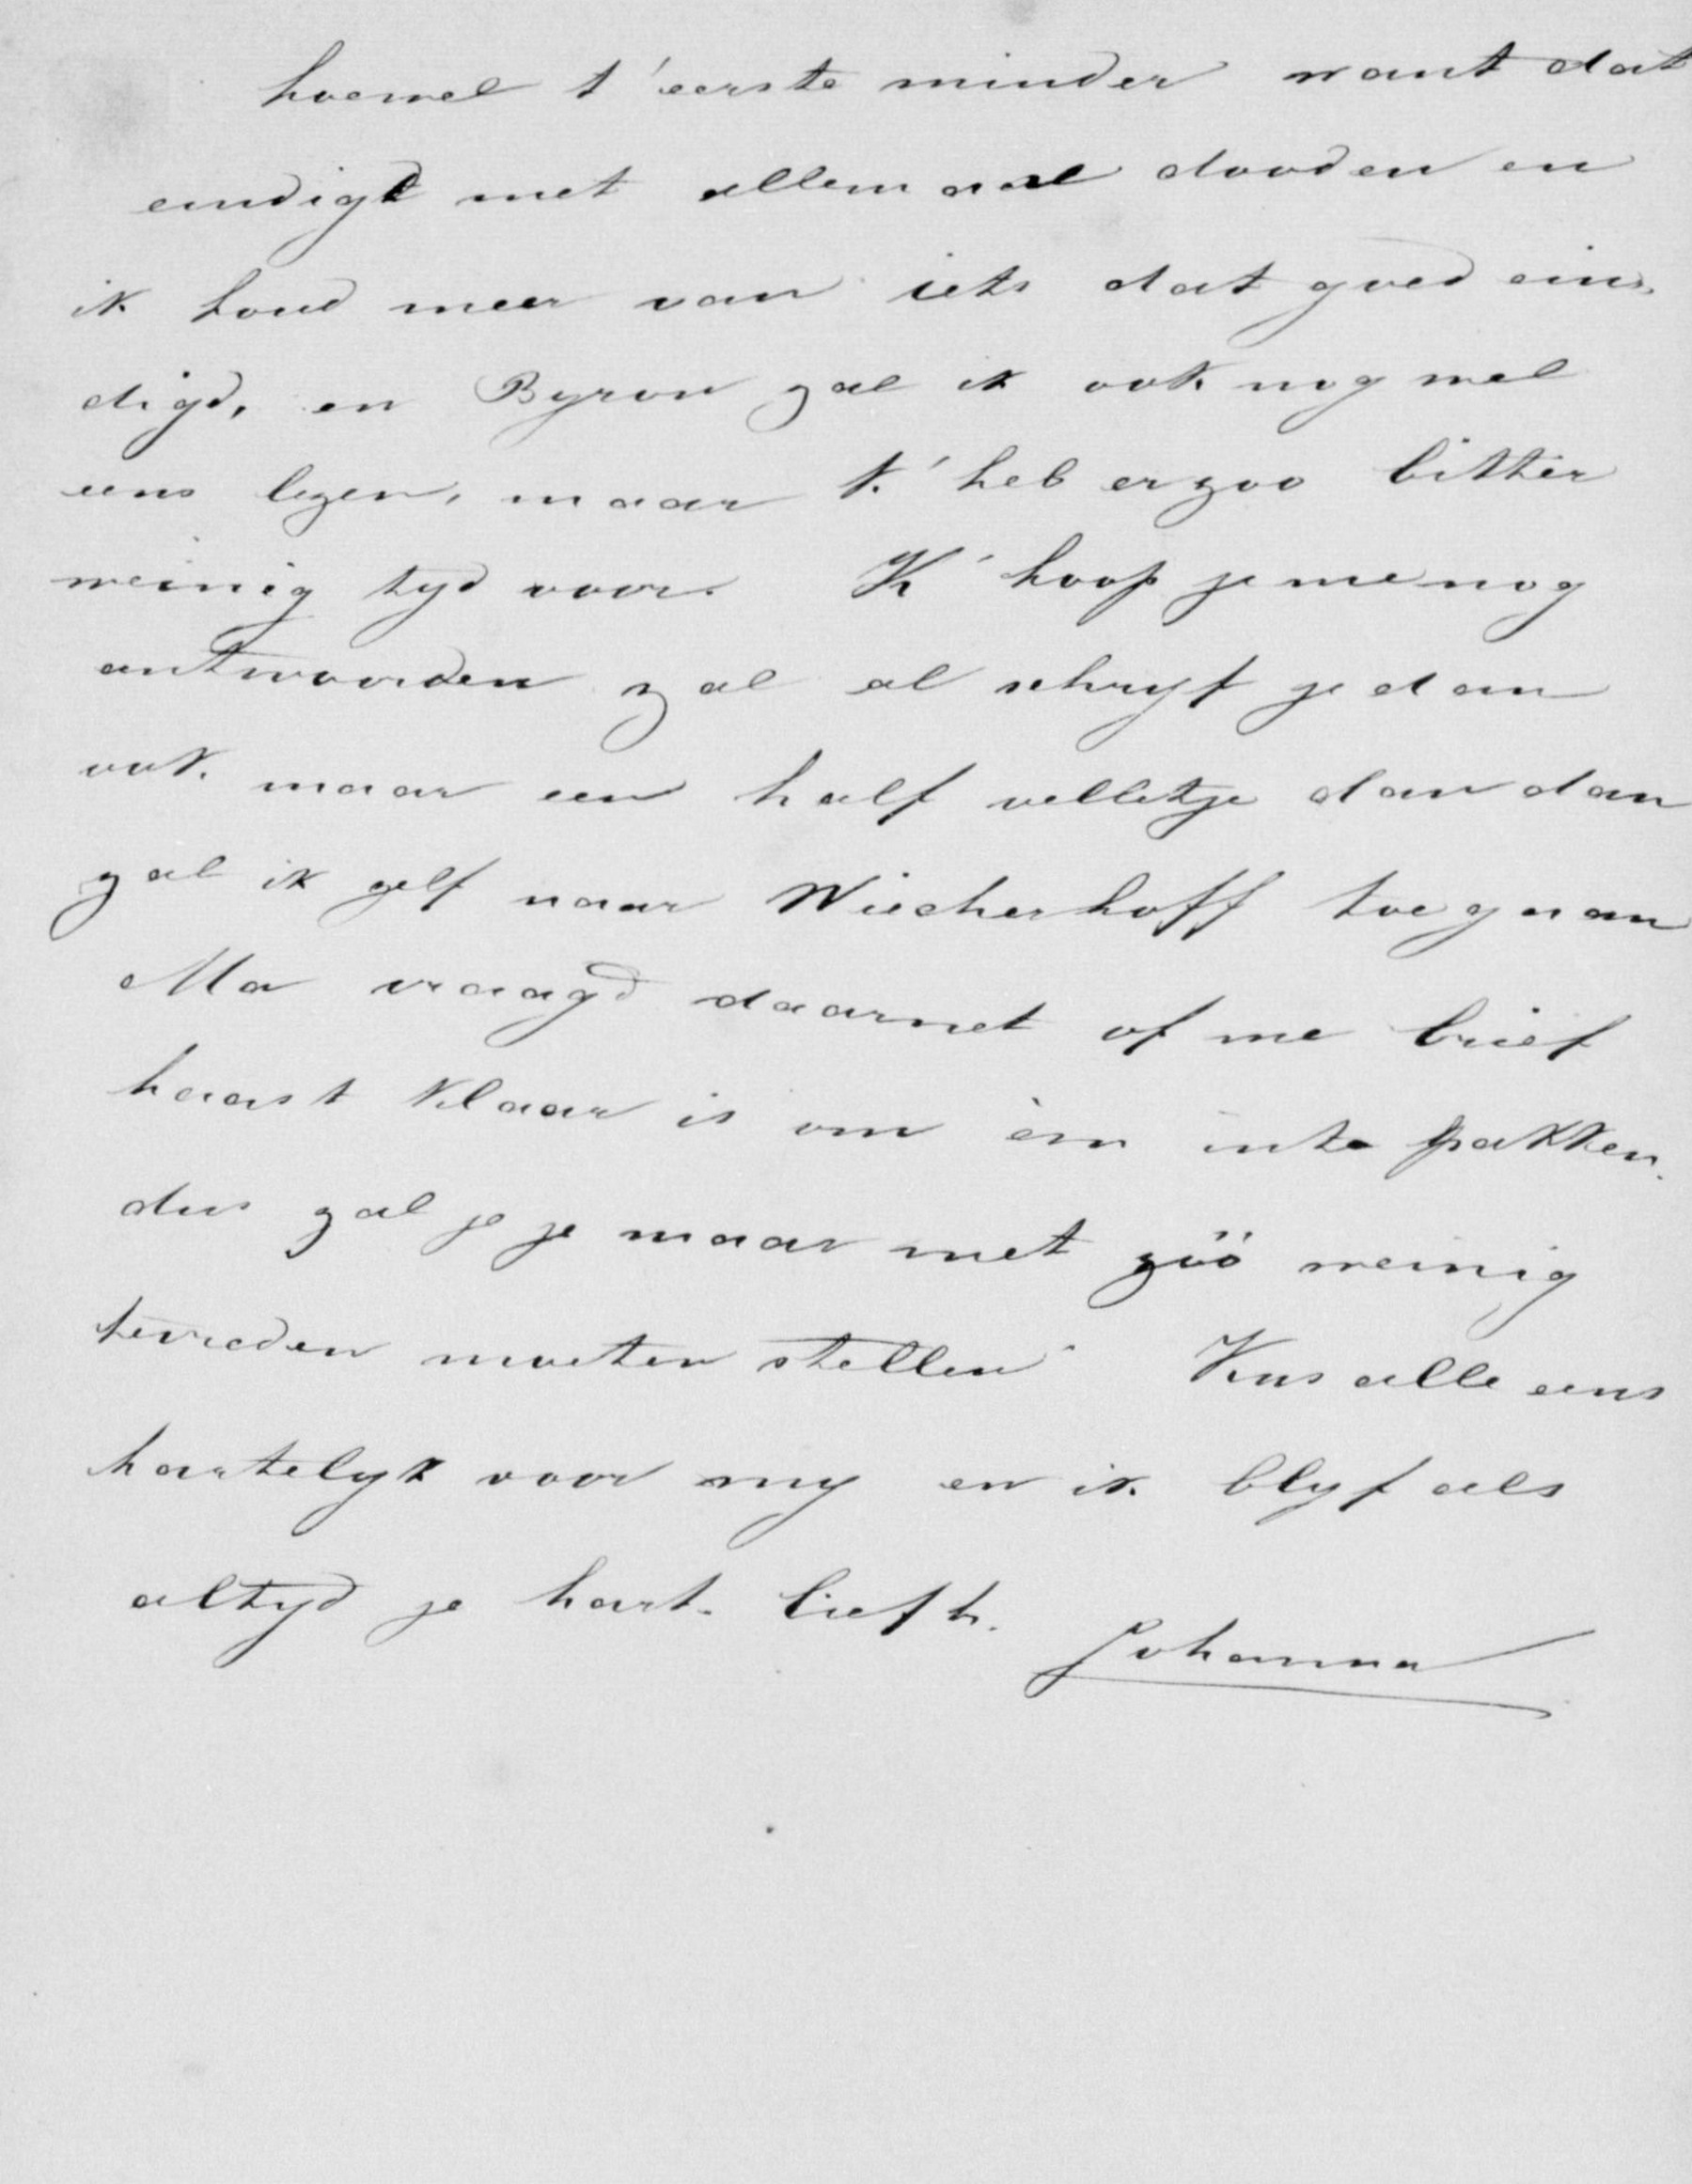 hoewel t'eerste minder want dat
eindigt met allemaal dooden en
ik houd meer van iets dat goed ein-
digd, en Byron zal ik ook nog wel
eens lezen, maar k'heb er zoo bitter
weinig tyd voor. K'hoop je me nog
antwoorden zal al schryf je dan
ook maar een half velletje dan dan
zal ik zelf naar Wiecherhoff toe gaan
Ma vraagd daarnet of me brief
haast klaar is om èm in te pakken.
dus zal je je maar met zóó weinig
tevreden moeten stellen Kus alle eens
hartelyk voor my en ik blyf als
altyd je hart. liefh. Johanna